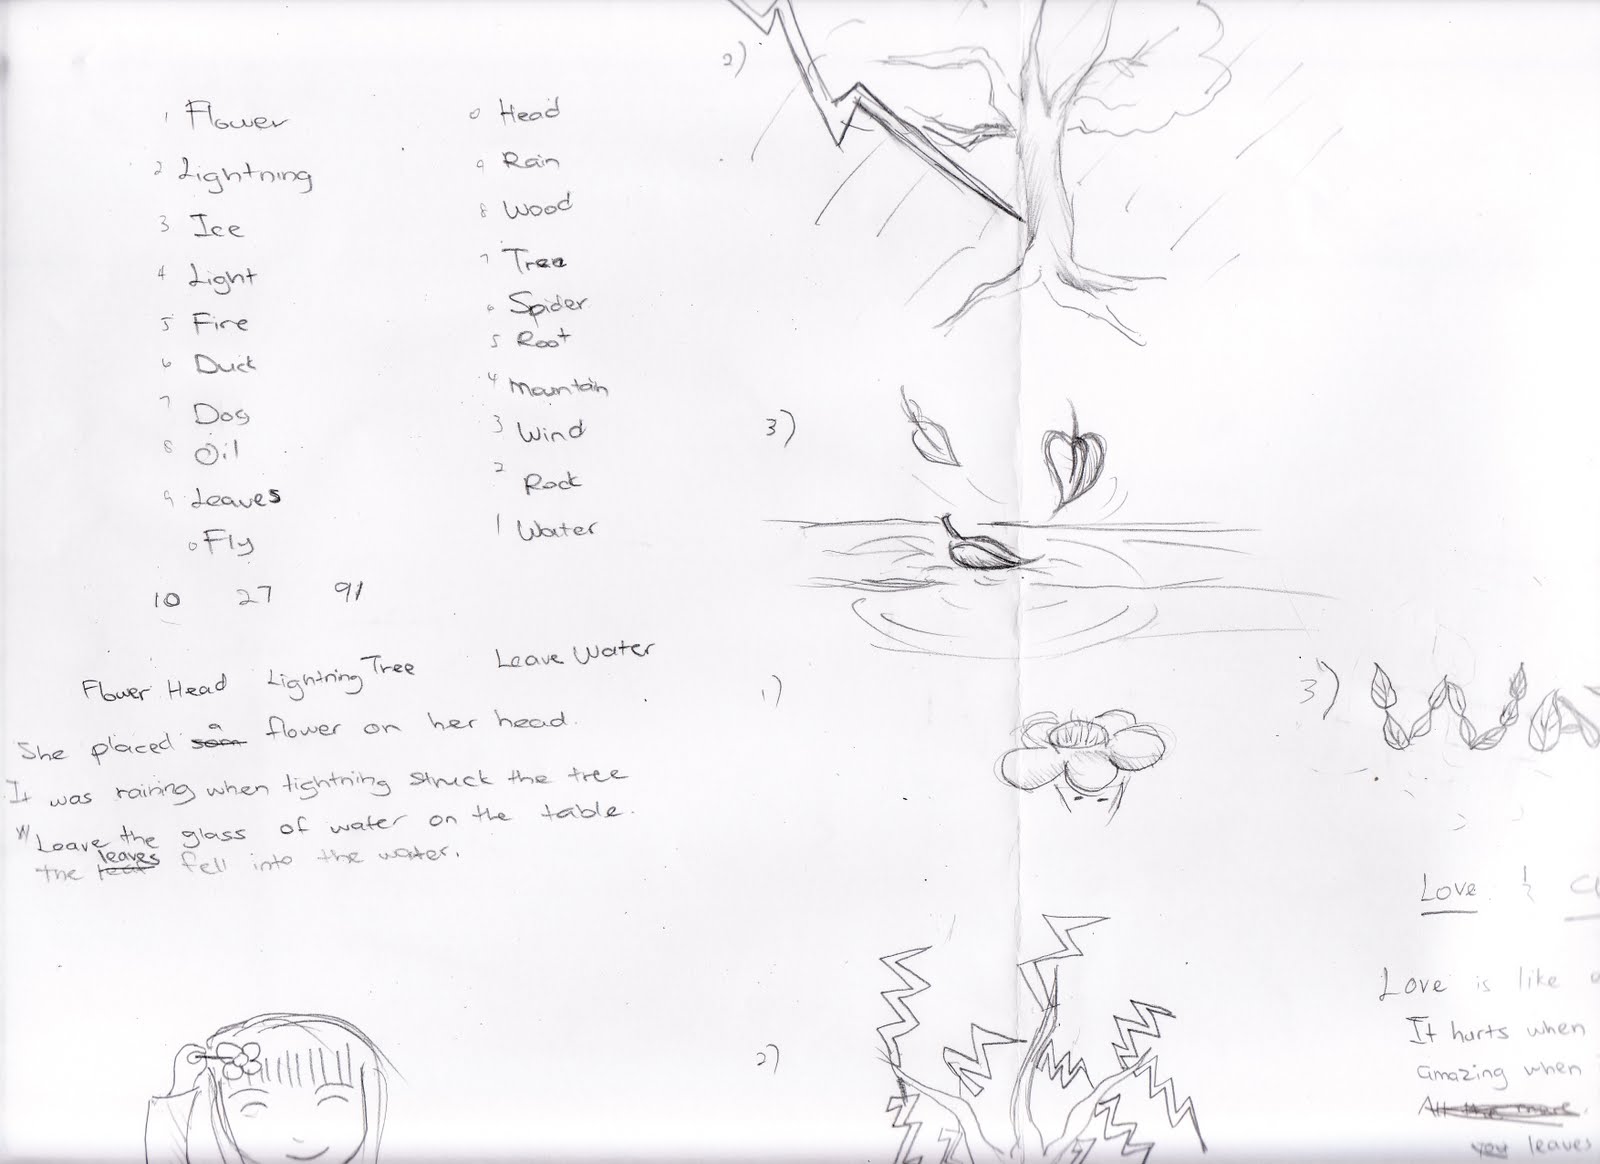 1 Flower
2 Lightning
3 Ice
4 Light
5 Fire
6 Duck
7 Dog
8 Oil
9 Leaves
0 Fly
0 Head
9 Rain
8 Wood
7 Tree
6 Spider
5 Root
4 Mountain
3 Wind
2 Rock
1 Water
10 27 91
Flower Head Lightning Tree Leave Water
She placed a flower on her head.
It was raining when lightning struck the tree
Leave the glass of water on the table.
the leaves fell into the water.
2)
3)
1)
2)
3) WA
Love &
Love is like
It hurts when
amazing when
All the more
you leaves